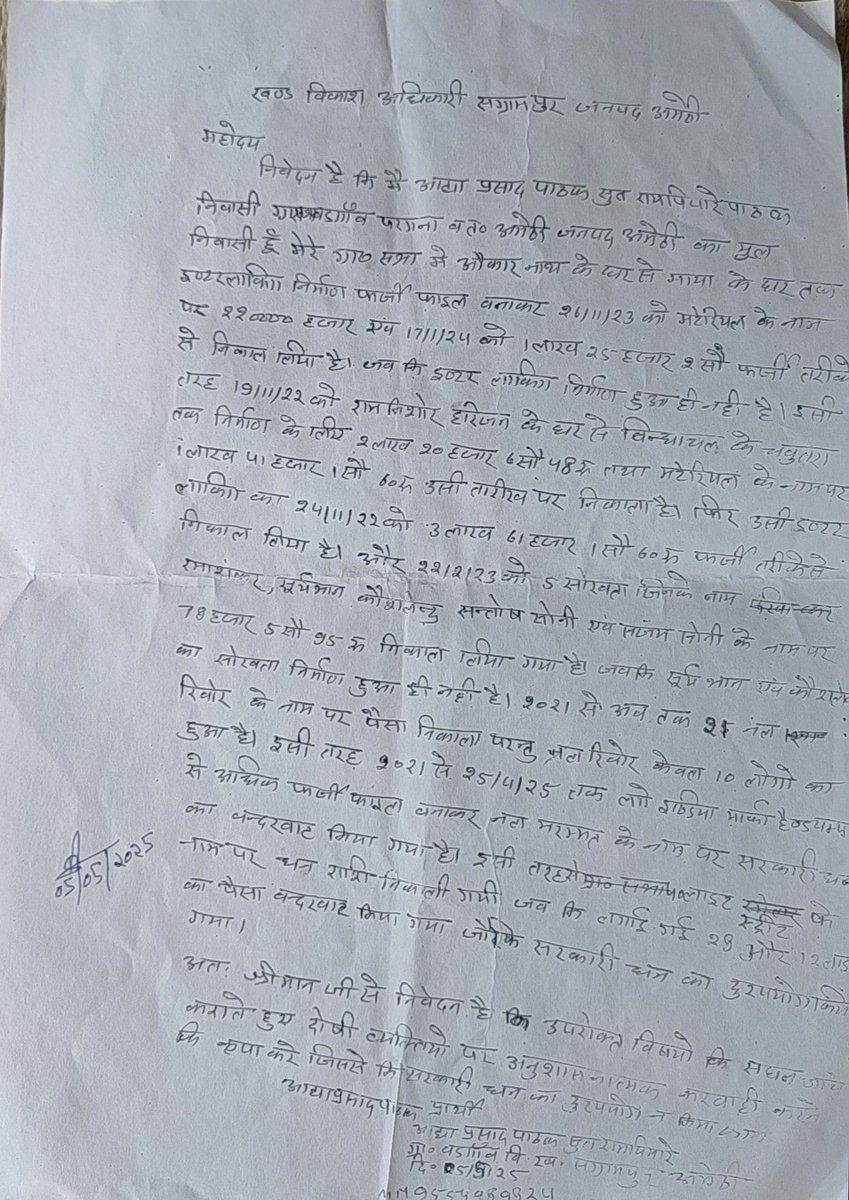 खण्ड विकाश अधिकारी सग्रामपुर जनपद अमेठी
महोदय
निवेदन है कि मै आद्या प्रसाद पाठक सुत रामपियारे पाठक
निवासी ग्राम बडगाँव परगना व त० अमेठी जनपद अमेठी का मुल
निवासी हूँ मेरे ग्रा० सभा मे ओंकार नाथ के घर से माया के घर तक
इण्टरलाकिंग निर्माण फर्जी फाइल बनाकर 26/11/23 को मटेरियल के नाम
पर हजार एवं 17/1/24 को 1लाख 25 हजार 2 सौ फर्जी तरीके
से निकाल लिया है। जब कि इण्टर लाकिंग निर्माण हुआ ही नही है। इसी
तरह 19/11/22 को रामकिशोर हरिजन के घर से बिन्धाचल के चबुतरा
तक निर्माण के लिए 2 लाख 20 हजार 6 सौ 48 रु तथा मटेरियल के नाम पर
1लाख 41 हजार 1 सौ 60 रु उसी तारीख पर निकाला है। फिर उसी इण्टर
लाकिंग का 24/11/22 को 3 लाख 61 हजार 1 सौ 60 रु फर्जी तरीके से
निकाल लिया है। और 22/2/23 को 5 सोख्ता जिनके नाम
रमाशंकर, सूर्यभान कौशलेन्द्र सन्तोष सोनी एवं संजय सोनी के नाम पर
78 हजार 5 सौ 95 रु निकाल लिया गया है। जबकि सूर्य भान एवं कौशलेन्द्र
का सोख्ता निर्माण हुआ ही नही है। 2021 से अब तक 21 नल
रिबोर के नाम पर पैसा निकाला परन्तु नल रिबोर केवल 10 लोगो का
हुआ है। इसी तरह 2021 से 25/4/25 तक लगे इण्डिया मार्का हैण्डपम्प
से अधिक फर्जी फाइल बनाकर नल मरम्मत के नाम पर सरकारी धन
का बन्दरबाट किया गया है। इसी तरह से लाइट के
स्ट्रीट
नाम पर धन राशि निकाली गयी जब कि लगाई गई 28 और 12 लाइट
का पैसा बन्दरबाट किया गया जोकि सरकारी धन का दुरुपयोग किया
गया।
अतः श्रीमान जी से निवेदन है कि उपरोक्त विषयो कि सघन जांच
कराते हुए दोषी व्यक्तियो पर अनुशासनात्मक करवाही करने
कि कृपा करे जिससे कि सरकारी धन का दुरुपयोग न किया जाय
आद्या प्रसाद पाठक प्रार्थी
आद्या प्रसाद पाठक सुत रामपियारे
ग्रा० बडगाँव वि. ख. सग्रामपुर अमेठी
दि० 05/5/25
05/05/2025